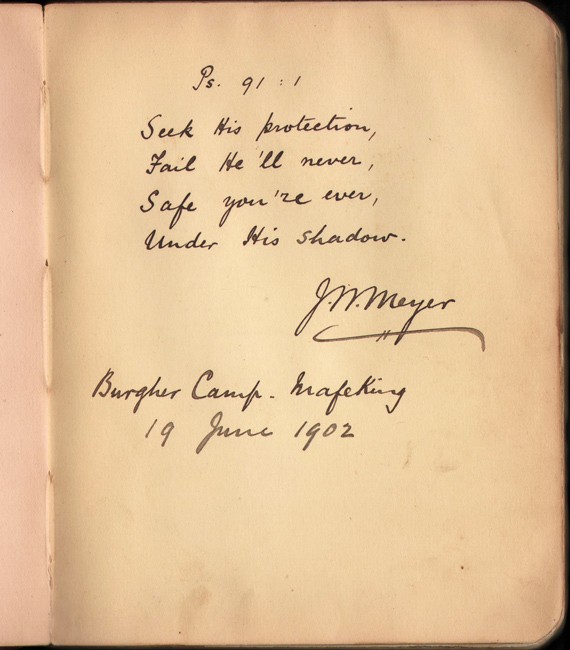 Ps. 91 : 1
Seek His protection,
Fail He'll never,
Safe you're ever,
Under His shadow.
J.W. Meyer
Burgher Camp. Mafeking
19 June 1902